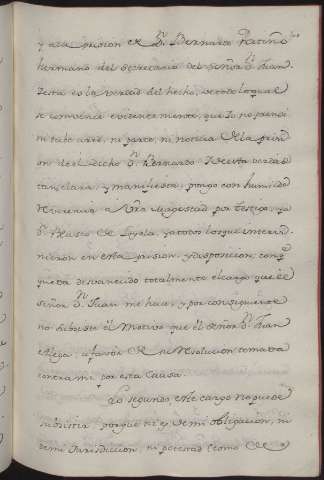 y a la prision de Dn. Bernardo Patiño
hermano del Secretario del Señor Dn. Juan.
Esta es la verdad del hecho, de todo lo qual
se convence evidentemente, que Yo no prendi
ni tube arte, ni parte, ni noticia de la prision
de el dicho Dn. Bernardo Y de esta verdad
tan clara, y manifiesta, pongo con humilde
reverencia a Vra Magestad por testigo, y a
Dn. Blasco de Loyola, y a todos los que intervi
nieron en esta prision, y disposicion, con q
queda desvanecido totalmente el cargo que el
Señor Dn. Juan me hace, y por consiguiente
no subsiste el Motivo que el Señor Dn. Juan
Alega, a favor de su Resolucion tomada
contra mi por esta Causa.
Lo segundo este cargo no puede
subsistir, porque ni es de mi obligacion, ni
de mi Jurisdiccion, ni potestad como de